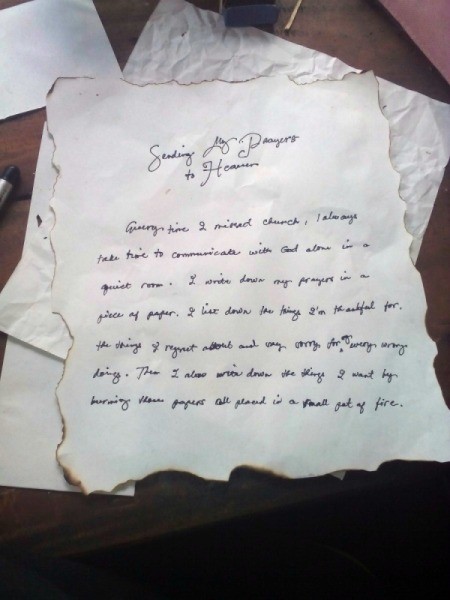 Sending My Prayers
to Heaven
Every time I missed church, I always
take time to communicate with God alone in a
quiet room. I wrote down my prayers in a
piece of paper. I list down the things I'm thankful for.
the things I regret about and say sorry for my every wrong
doings. Then I also write down the things I want by
burning these papers all placed in a small pot of fire.